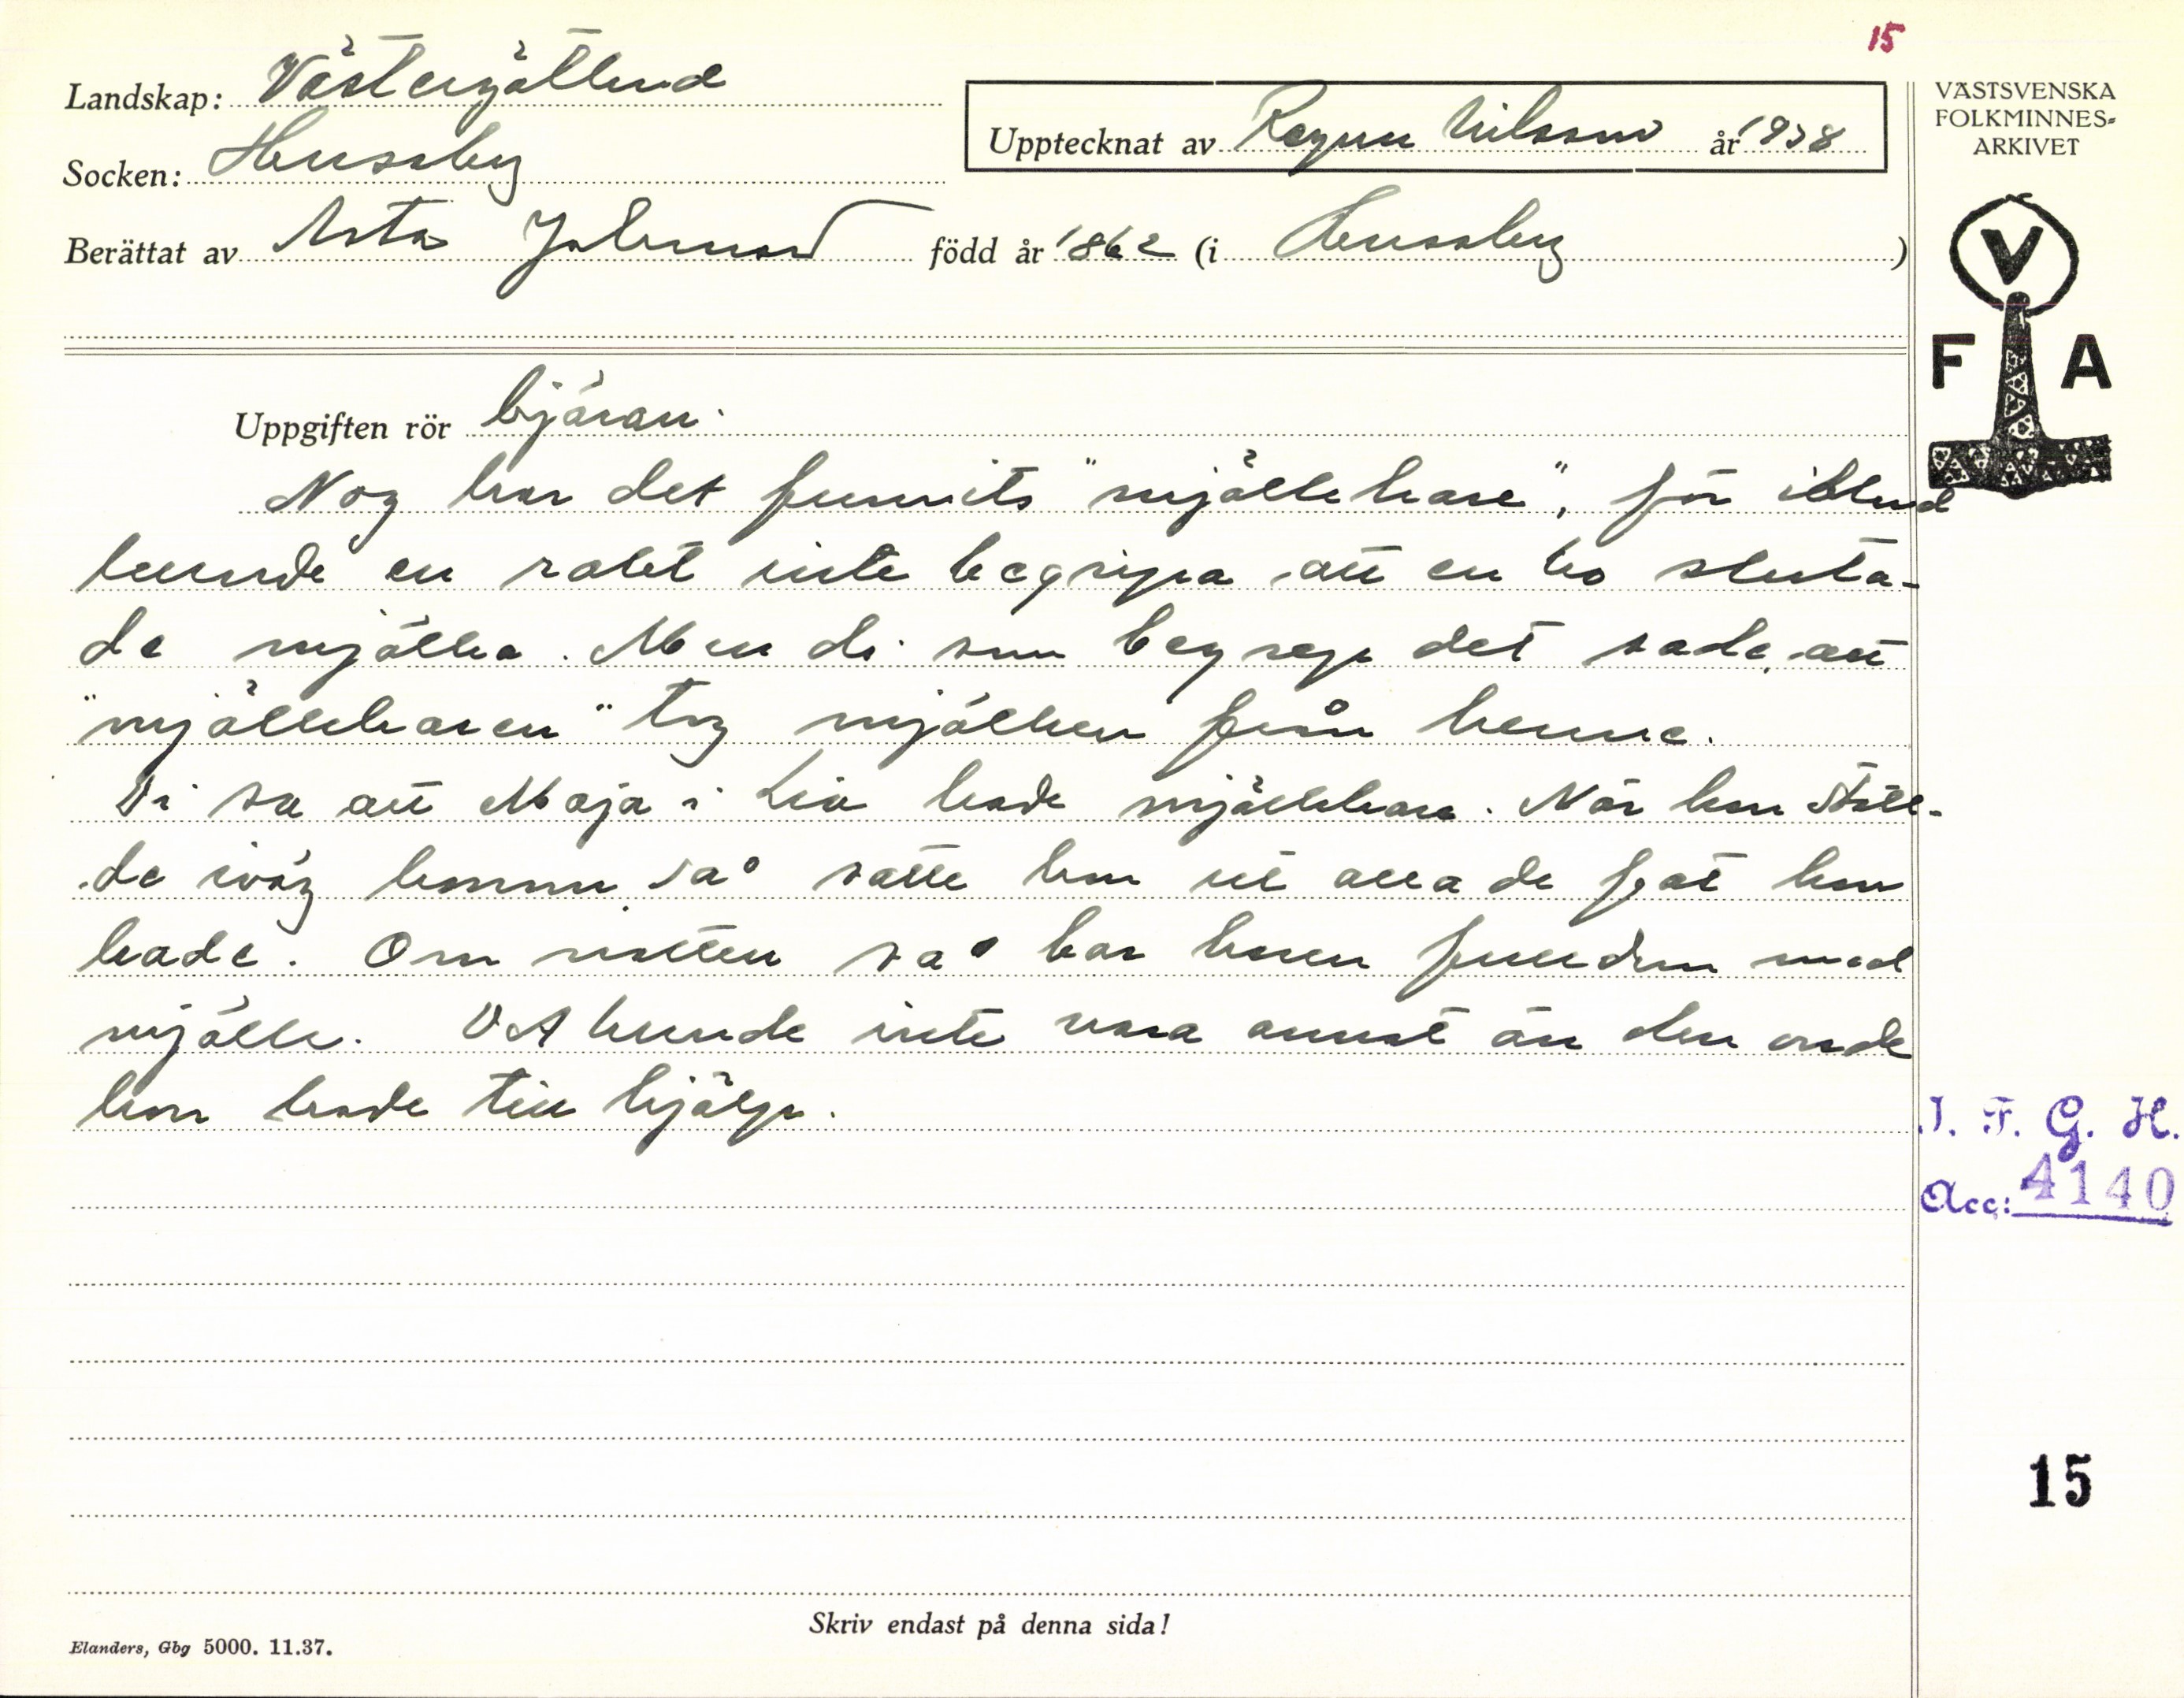 15
Landskap: Västergötland
Socken: Hussaby
Upptecknat av Ragnar Nilsson år 1938
Berättat av Asta Johansson född år 1862 (i Hussaby)
VÄSTSVENSKA
FOLKMINNES=
ARKIVET
V
F A
Uppgiften rör bjäran.
Nog har det funnits "mjölkhare", för ibland
kunde en rakt inte begripa att en ko sluta-
de mjölka. Men di som begrep det sade, att
"mjölkharen" tog mjölken från henne.
Di sa att Maja i Lia hade mjölkhare. Når hon ställ-
de iväg honom så satte hon ut alla de fat hon
hade. Om natten så bar haren full dem med
mjölk. Dt kunde inte vara annat än den onde
hon hade till hjälp.
I. F. G. H.
Acc: 4140
15
Skriv endast på denna sida!
Elanders, Gbg 5000. 11.37.